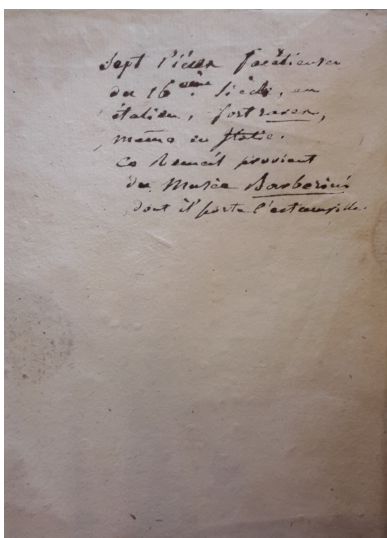 Sept Pièces facétieuses
du 16ème Siècle, en
italien, fort rares,
même en Italie.
Ce Recueil provient
du Musée Barberini
dont il porte l'estampille.